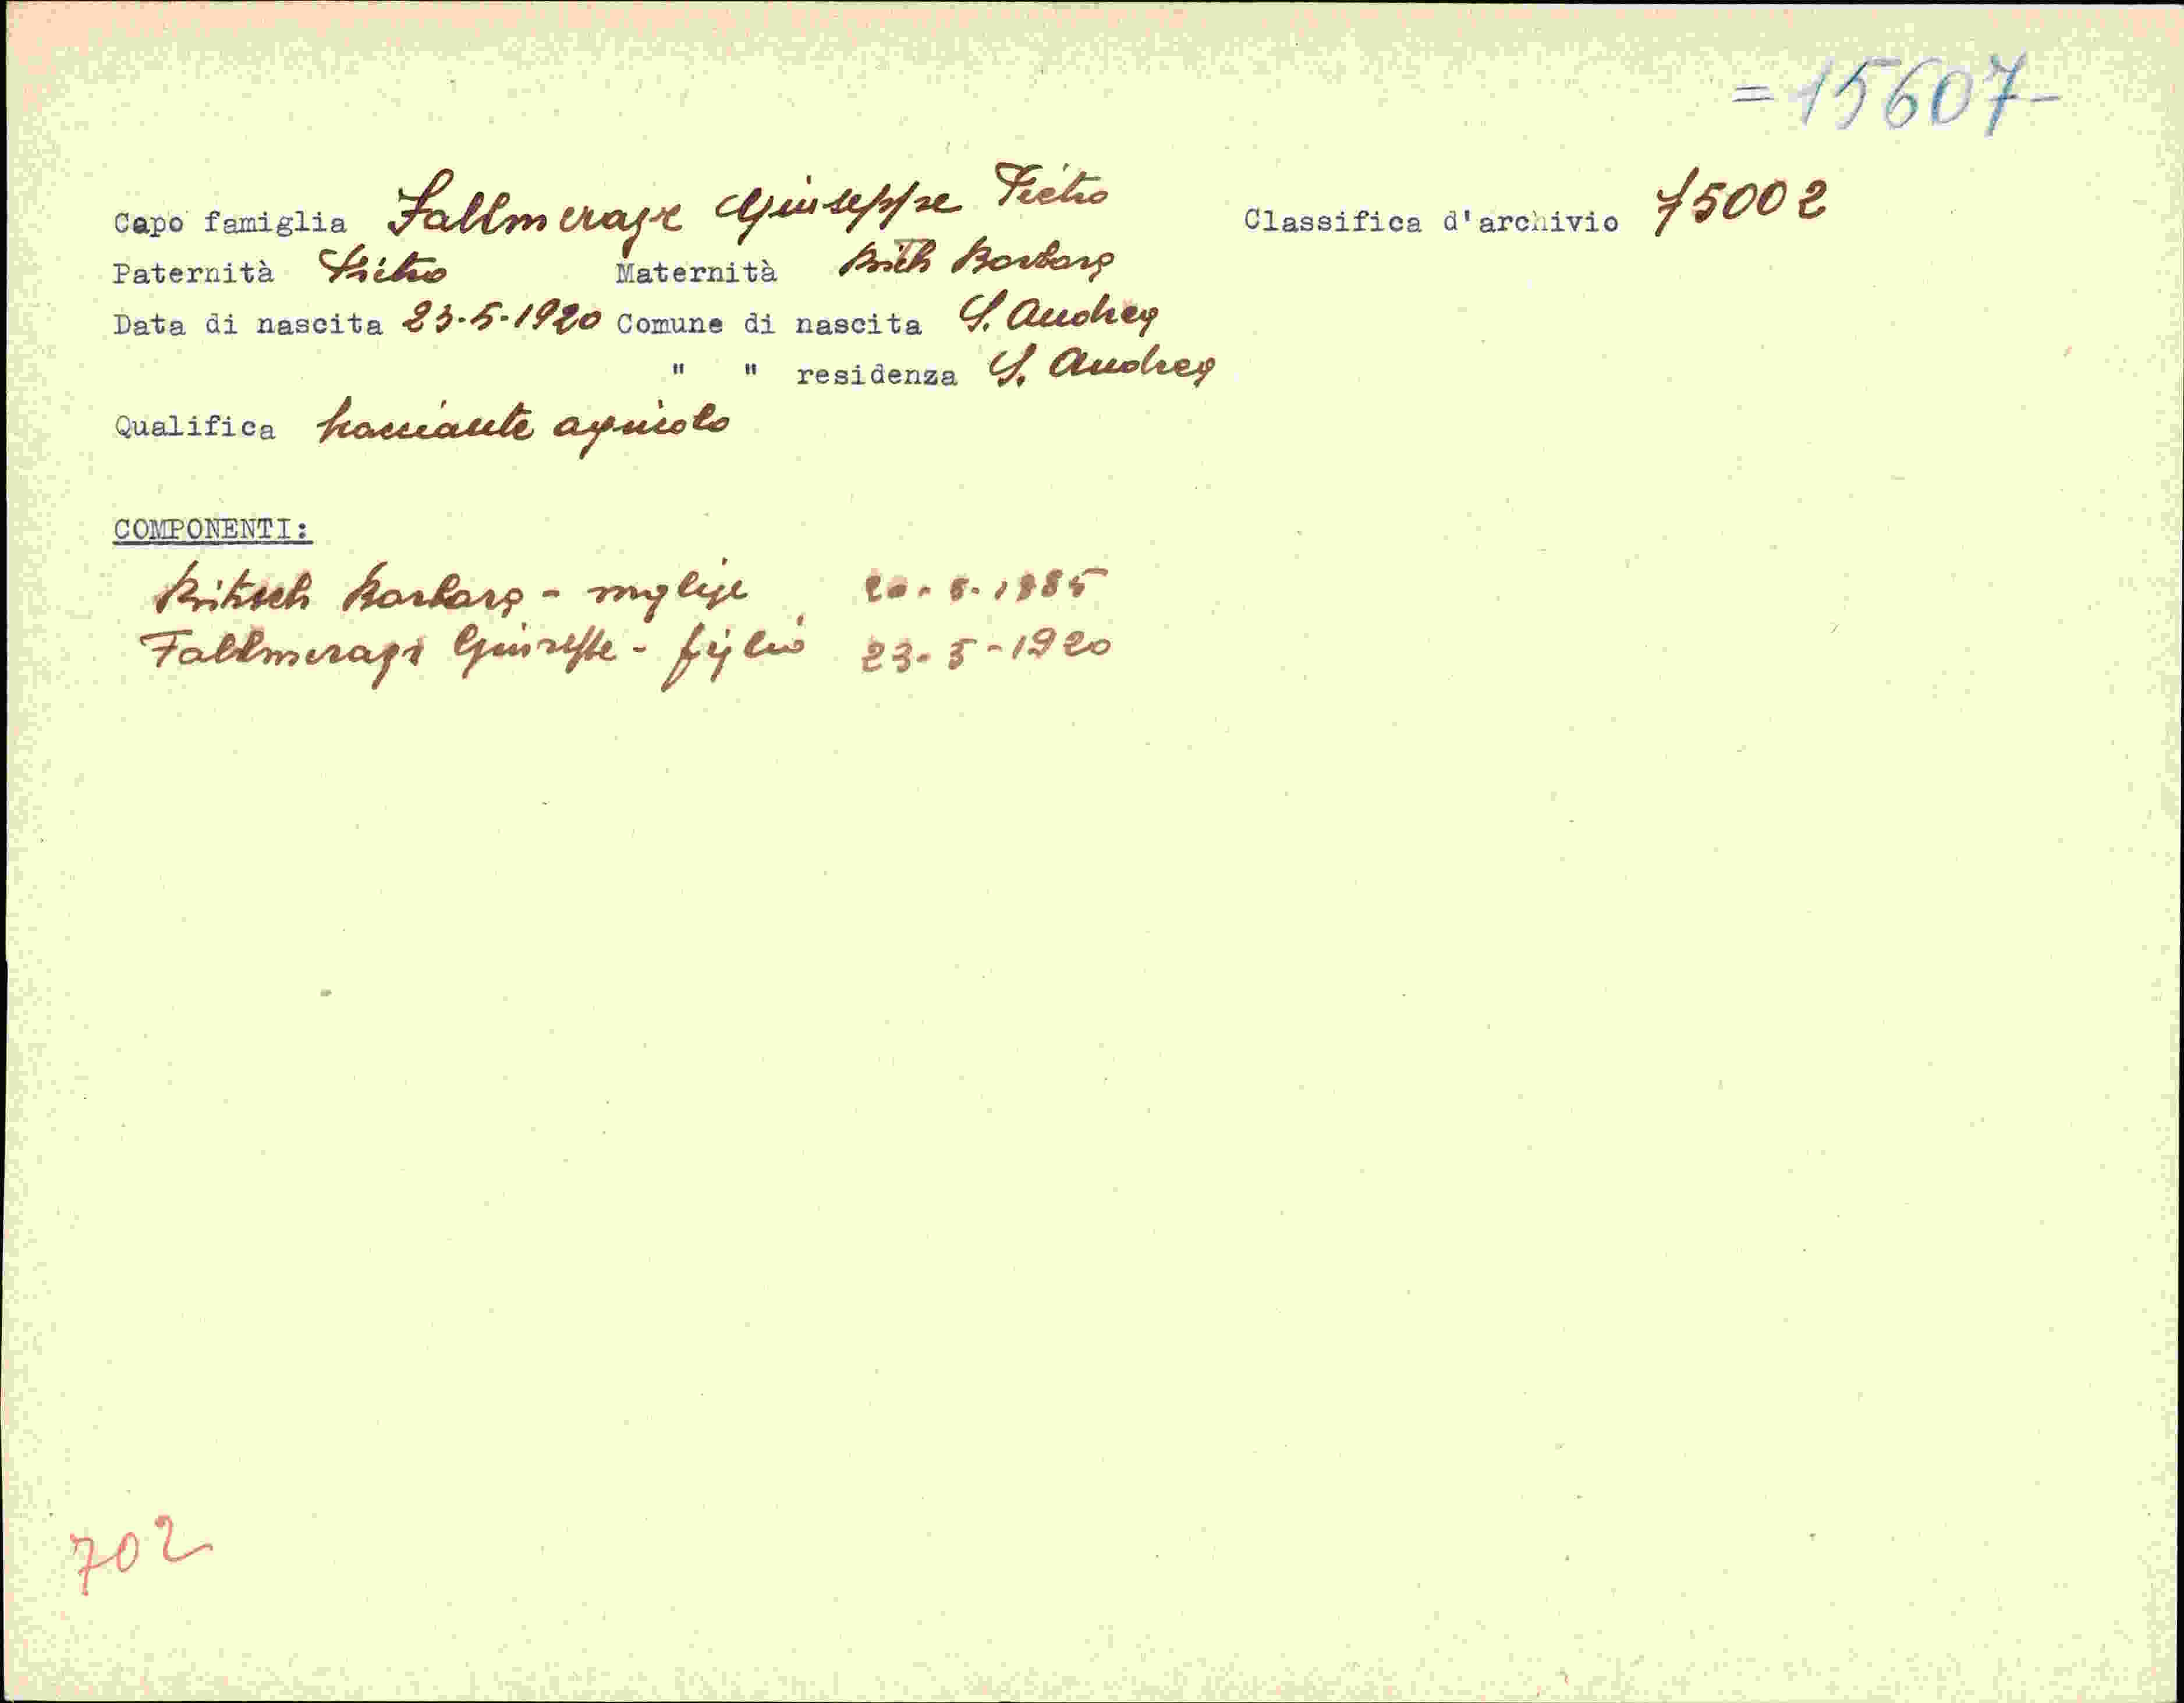 = 15607 -
Capo famiglia Fallmeraye Giuseppe Pietro Classifica d'archivio 15002
Paternità Pietro Maternità Barbara
Data di nascita 23-5-1920 Comune di nascita S. Andrea
" " residenza S. Andrea
Qualifica bracciante agricolo
COMPONENTI:
Barbara - moglie 20.8.1885
Fallmeraye Giuseppe - figlio 23-5-1920
702